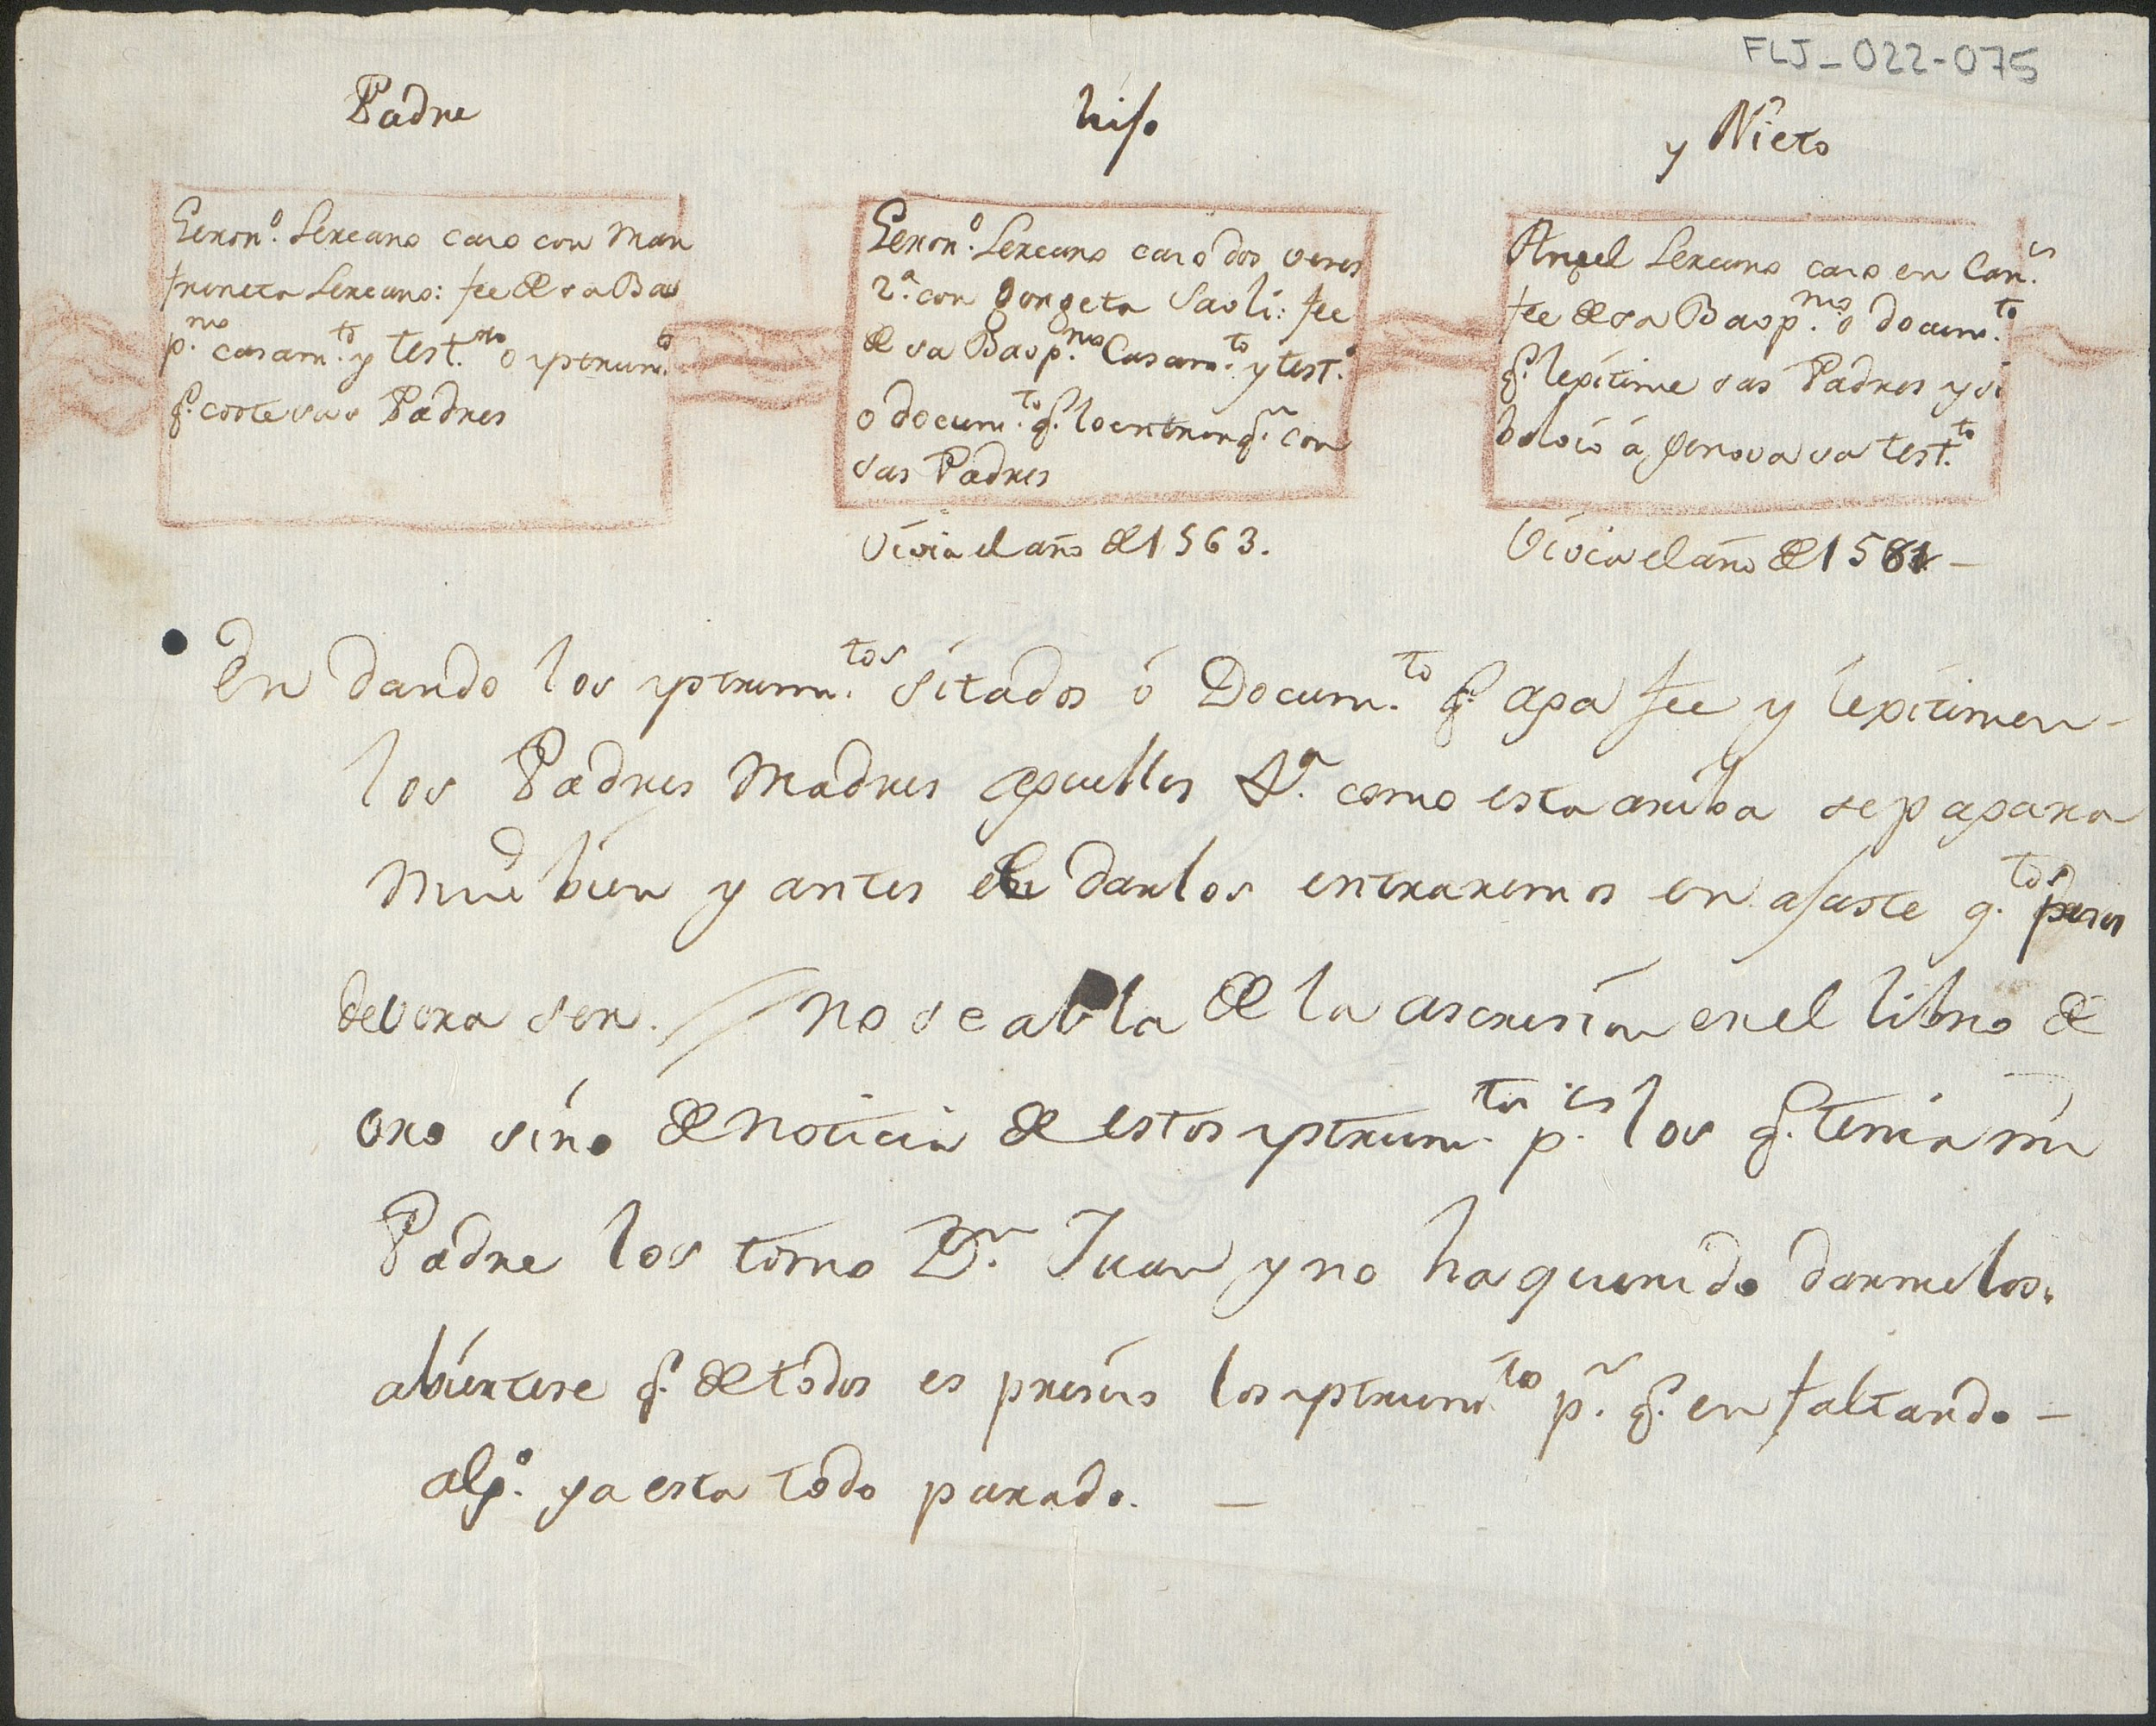 FLJ_022-075
Padre
Geron.º Lercaro caso con Mari
freneta Lercaro: fee de su Bau
p.mo casam.to y test.to o ystrum.to
q.e coste sus Padres
hijo
Geron.º Lercaro caso dos veses
2.ª con Gorgeta Saoli: fee
de su Baup.mo Casam.to y test.º
o docum.to q.e lo entronq.e con
sus Padres
Vivia el año de 1563.
y Nieto
Angel Lercaro caso en Can.s
fee de su Baup.mo o docum.to
q.e lexitime sus Padres y si
bolvió á Genova su test.to
Vivia el año de 1581 –
En dando los ystrum.tos sitados ó Docum.to q.e aga fee y lexitimen –
los Padres Madres Aguellos D.ª como esta ariba se pagara
mui bien y antes de darlos entraremos en ajuste q.tos pesos
devera ser. // no se abla de la ascrision en el libro de
oro sino de noticia de estos ystrum.tos p.es los q.e tenia mi
Padre los tomo D.n Juan y no ha querido darmelos.
abiertese q.e de todos es presiso los ystrum.tos p.r q.e en faltando –
alg.º ya esta todo parado. –